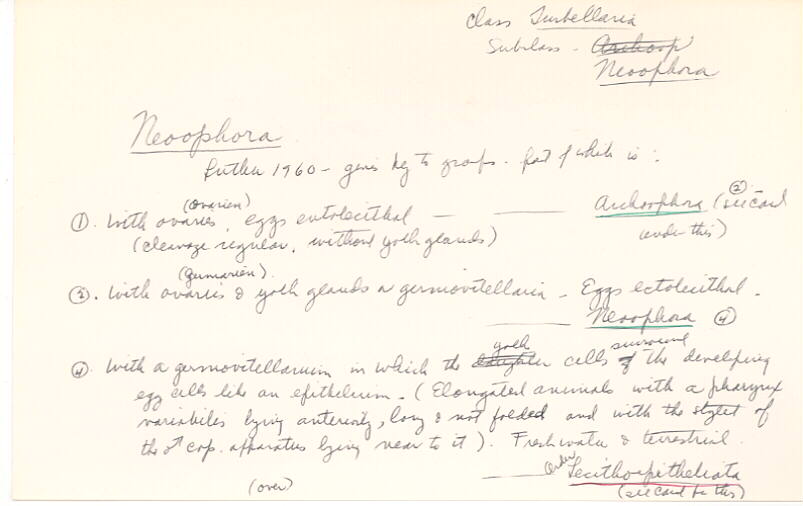 Class Turbellaria
Subclass - Archoop
Neoophora
Neoophora
Luther 1960 - gives key to groups. Part of which is:
(Ovarien)
① . With ovaries, eggs entolecithal — —— Archoophora (② see card
(cleavage regular, without yolk glands) under this)
(Germarien).
② . With ovaries & yolk glands or germovitellaria - Eggs ectolecithal.
—— Neoophora ④
yolk surround
④ . With a germovitellarium in which the daughter cells of the developing
egg cells like an epithelium. (Elongated animals with a pharynx
variabilis lying anteriorly, long & not folded and with the stylet of
the ♂ cop. apparatus lying near to it). Freshwater & terrestrial.
—— Order Lecithoepitheliata
(over) (see card for this)